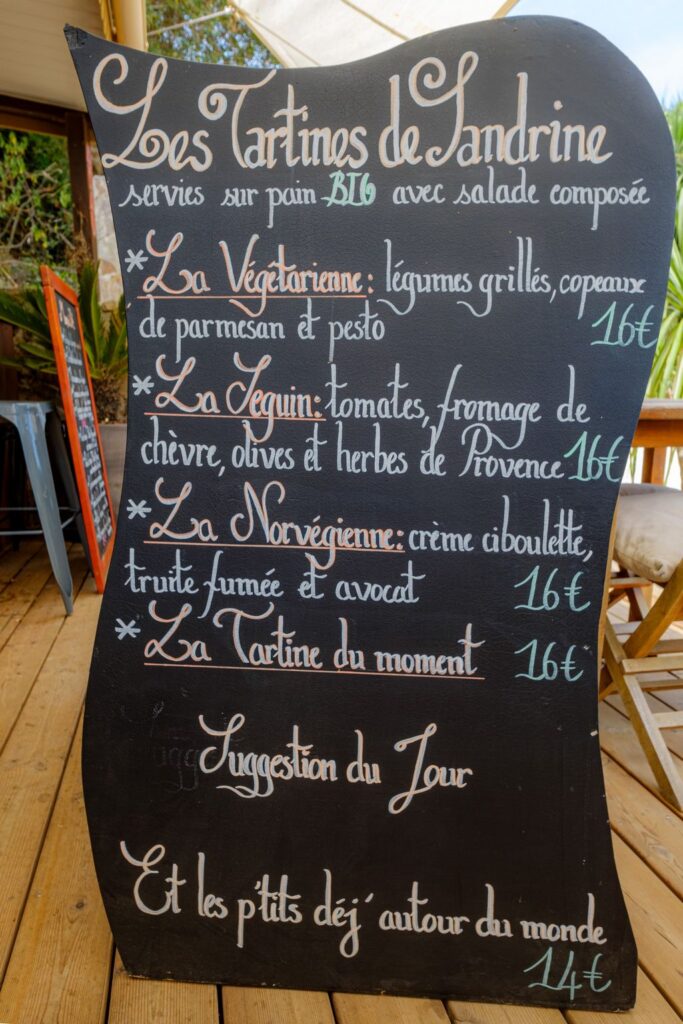 Les Tartines de Sandrine
servies sur pain BIO avec salade composée
* La Végétarienne : légumes grillés, copeaux
de parmesan et pesto 16€
* La Seguin : tomates, fromage de
chèvre, olives et herbes de Provence 16€
* La Norvégienne : crème ciboulette,
truite fumée et avocat 16€
* La Tartine du moment 16€
Suggestion du Jour
Et les p'tits déj' autour du monde
14€